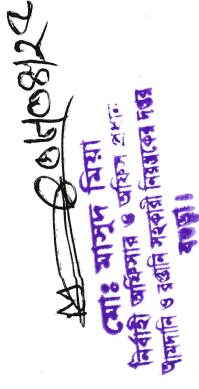 ০৮/০৪/২৭
মোঃ মাসুদ মিয়া
নির্বাহী অফিসার ও অফিস প্রধান
আমদানি ও রপ্তানি সহকারী নিয়ন্ত্রকের দপ্তর
বগুড়া।